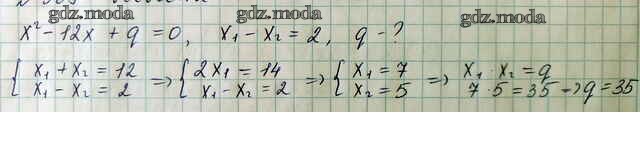 gdz.moda gdz.moda gdz.moda
x² - 12x + q = 0, x₁ - x₂ = 2, q - ?
{ x₁ + x₂ = 12 => { 2x₁ = 14 => { x₁ = 7 => x₁ · x₂ = q
x₁ - x₂ = 2 x₁ - x₂ = 2 x₂ = 5 7 · 5 = 35 -> q = 35